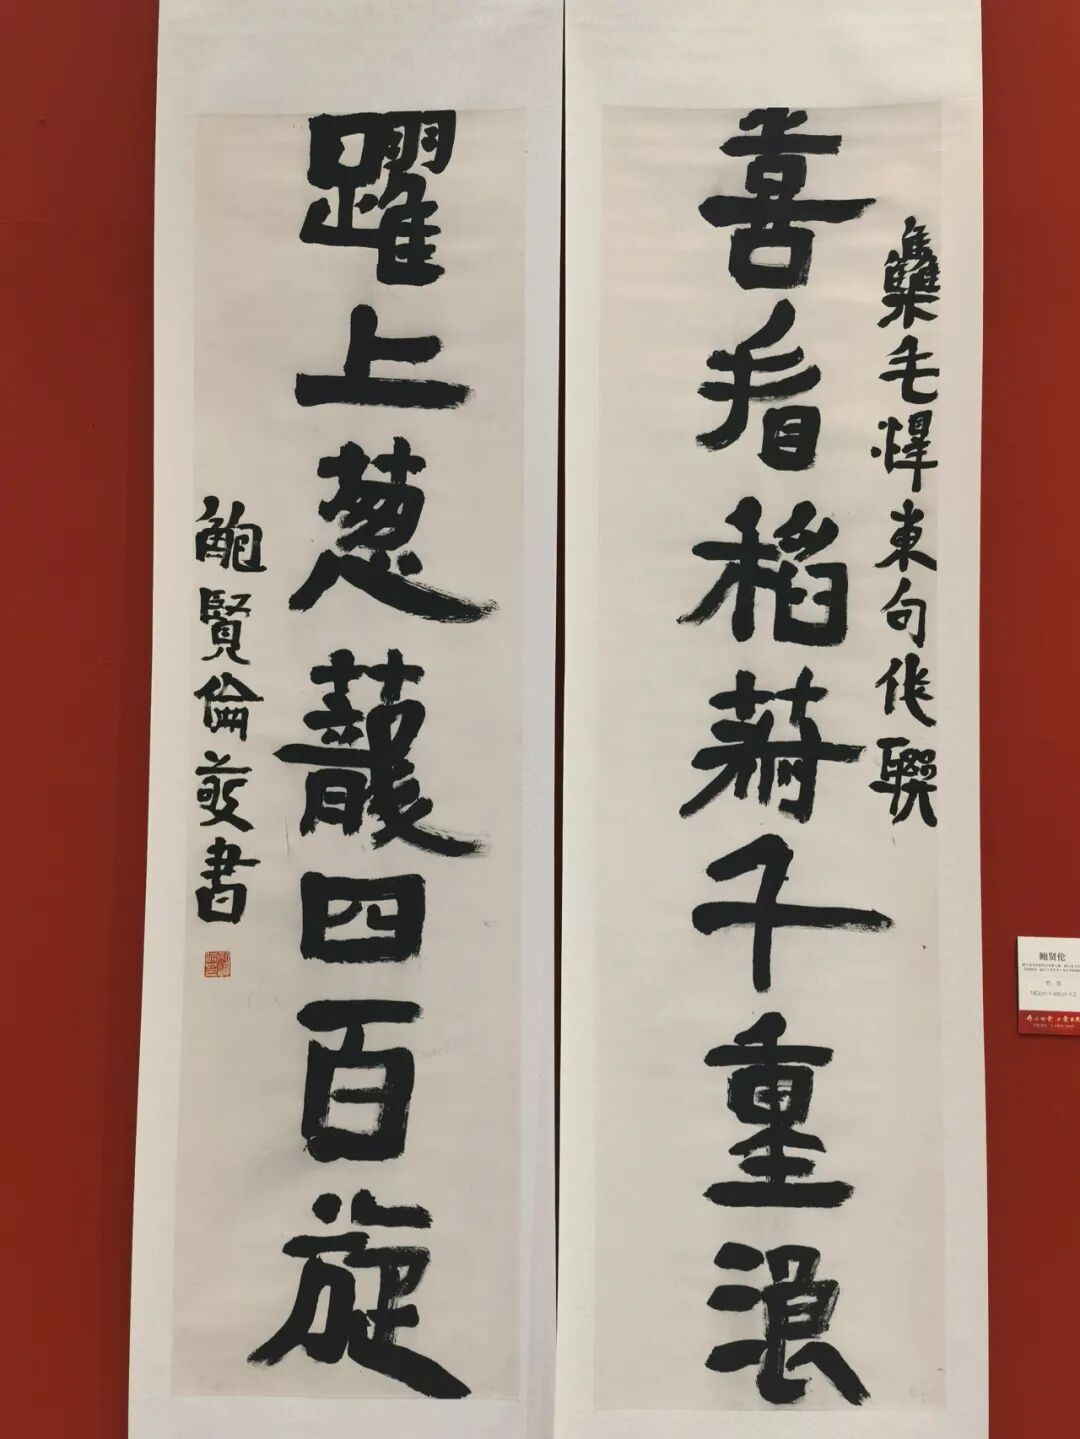 喜看稻菽千重浪
雧毛澤東句作聯
躍上葱蘢四百旋
鮑賢倫敬書
鲍贤伦
书法
180cm×48cm×2